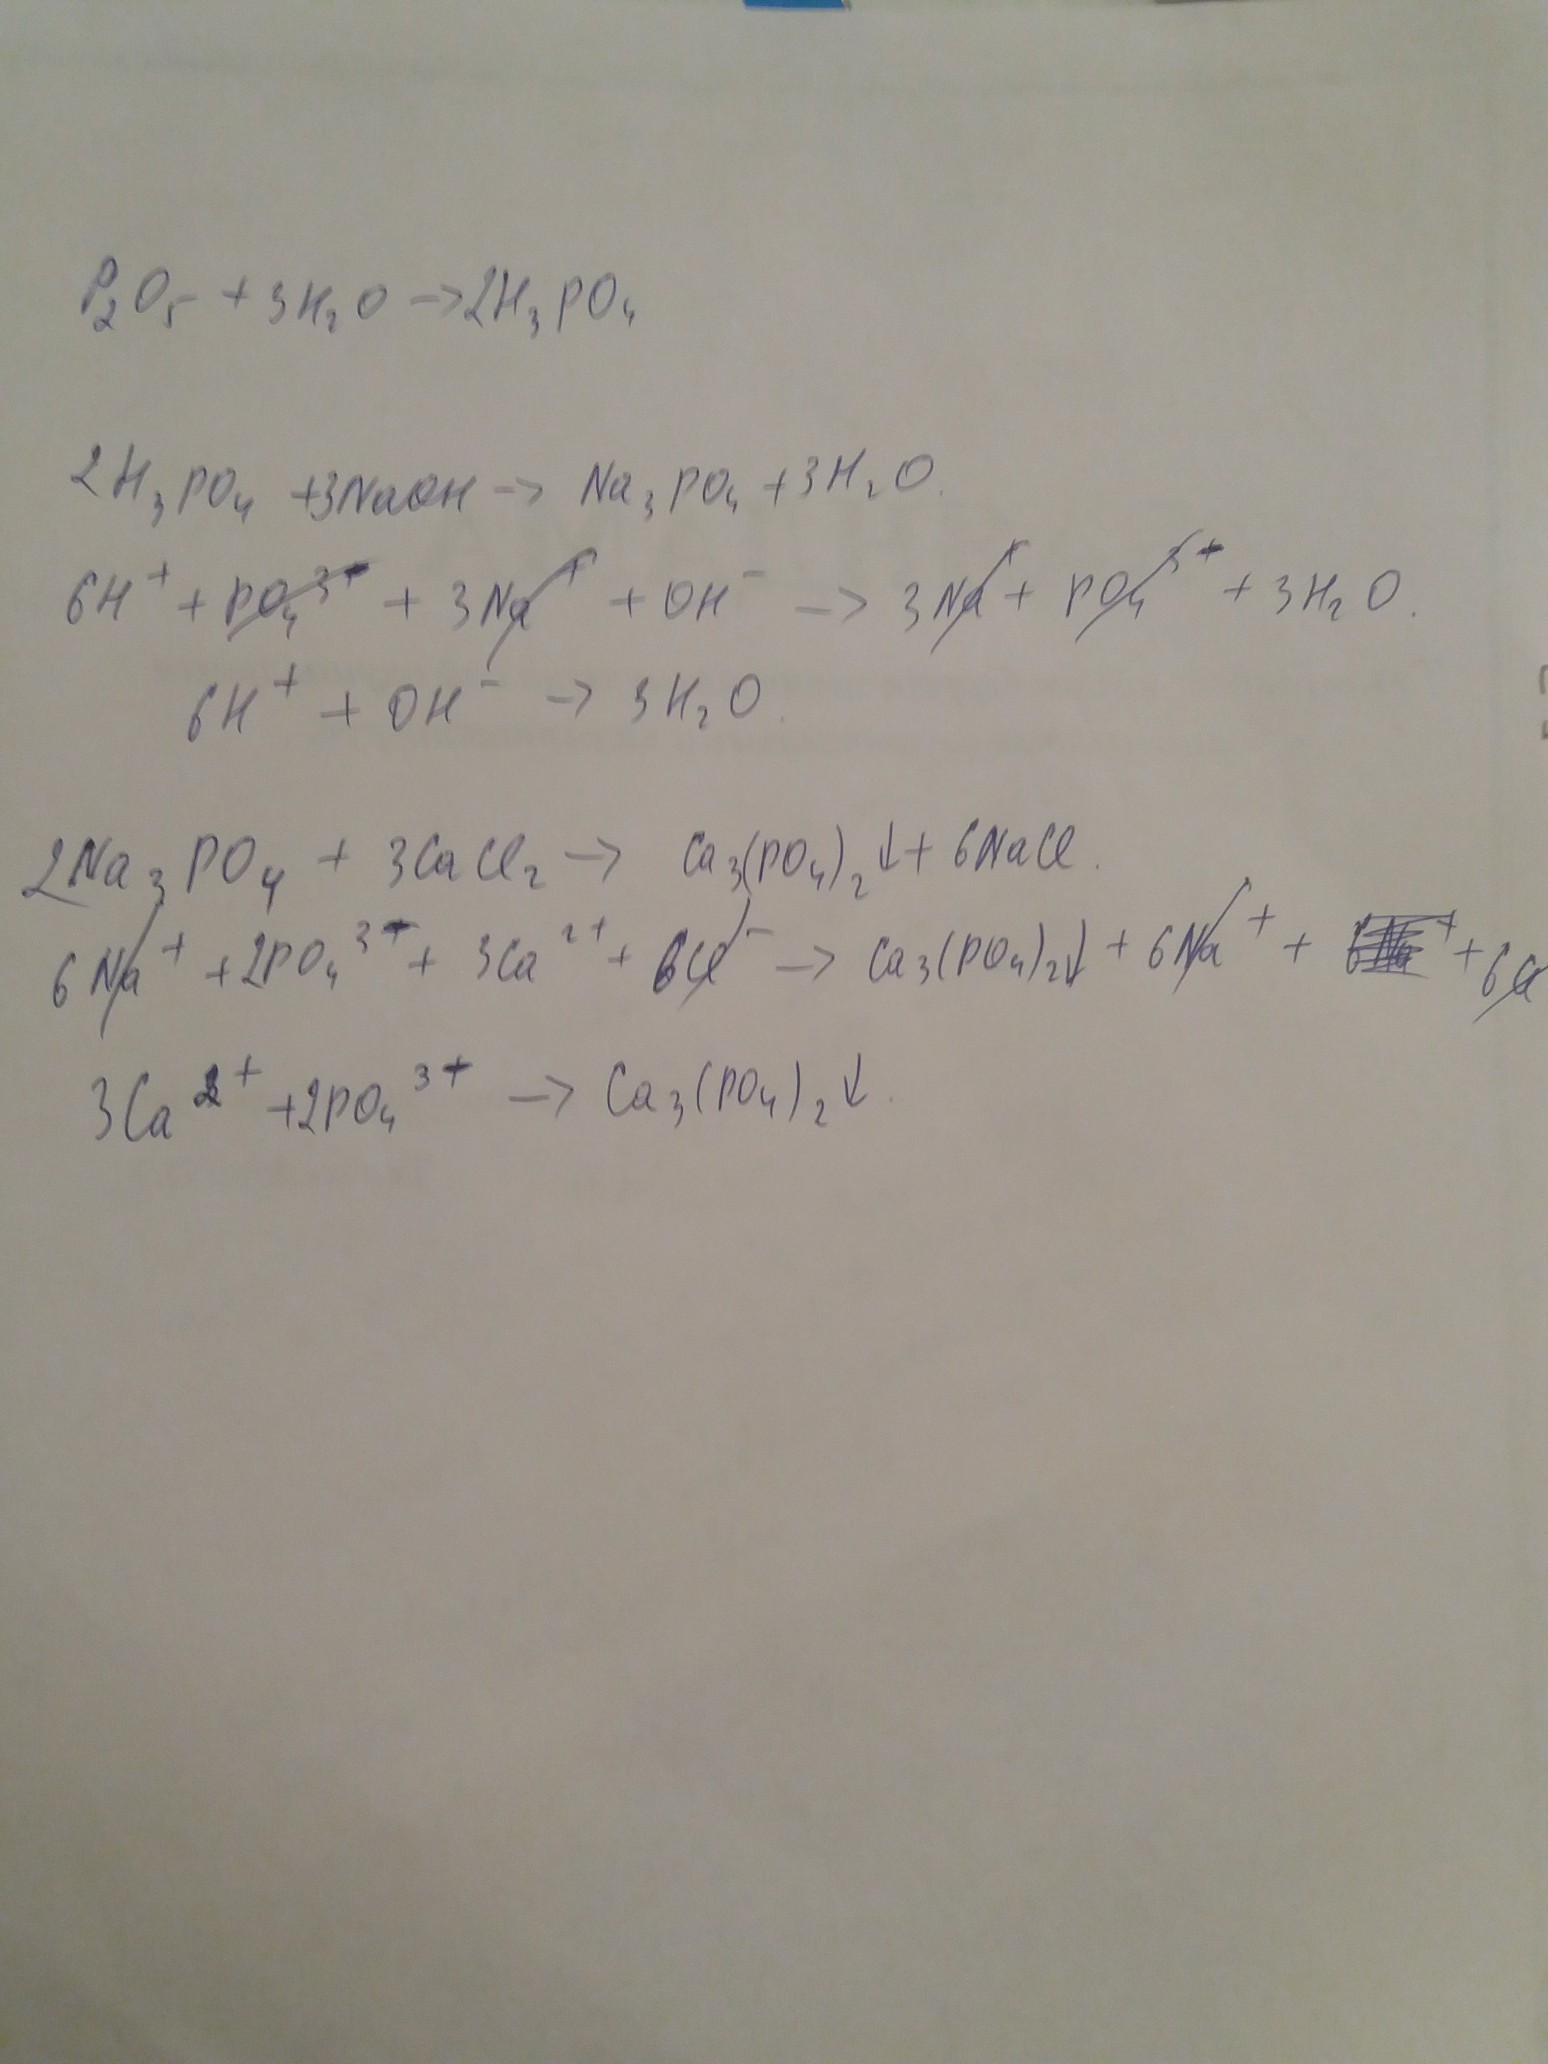 P₂O₅ + 3H₂O → 2H₃PO₄
2H₃PO₄ + 3NaOH → Na₃PO₄ + 3H₂O.
6H⁺ + PO₄³⁺ + 3Na⁺ + OH⁻ → 3Na⁺ + PO₄³⁺ + 3H₂O.
6H⁺ + OH⁻ → 3H₂O.
2Na₃PO₄ + 3CaCl₂ → Ca₃(PO₄)₂↓ + 6NaCl.
6Na⁺ + 2PO₄³⁺ + 3Ca²⁺ + 6Cl⁻ → Ca₃(PO₄)₂↓ + 6Na⁺ + + 6Cl
3Ca²⁺ + 2PO₄³⁺ → Ca₃(PO₄)₂↓.